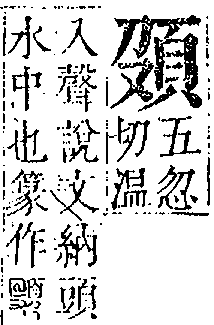 五忽
切温
入聲說文納頭
水中也篆作